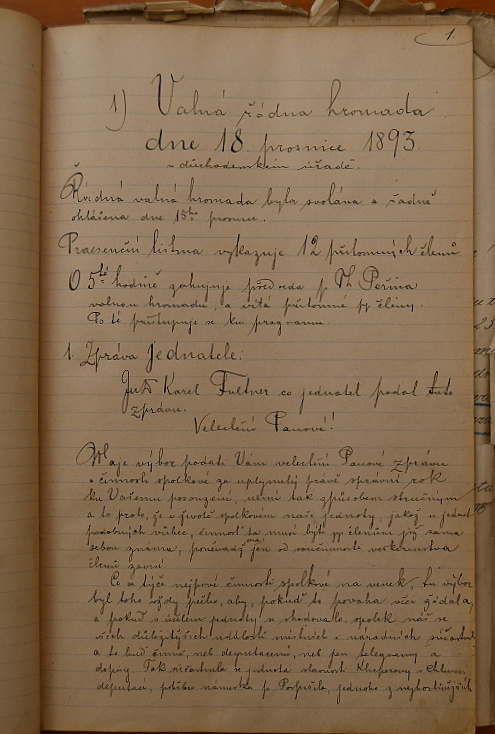 1.
1) Valná řádna hromada
dne 18. prosince 1893.
v důchodenském úřadě.
Řádná valná hromada byla svolána a řádně
ohlášena dne 15ho prosince.
Praesenční listina vykazuje 12 přítomných členů
O 5té hodině zahajuje předseda p. Th. Peřina
valnou hromadu, a vítá přítomné pp. členy.
Po té přistupuje se ku programu.
1. Zpráva Jednatele:
Karel Fultner co jednatel podal tuto
zprávu.
Velectění Panové!
Maje výbor podati Vám velectění Panové zprávu
o činnosti spolkové za uplynulý právě správní rok
ku Vašemu posouzení, učiní tak způsobem stručným
a to proto, že o životě spolkovém naší jednoty, jakož u jednot
podobných vůbec, činnost ta musí býti pp. členům již sama
sebou známa, poněvadž ona jen od součinnosti veškerenstva
členů závisí
Co se týče nejprvé činnosti spolkové na venek, tu výbor
byl toho vždy pečliv, aby, pokud to povaha věci žádala,
a pokud s účelem jednoty se shodovalo, spolek náš se
všech důležitějších událostí místních i národních súčastnil
a to buď činně, neb deputacemi, neb jen telegramy a
dopisy. Tak súčastnila se jednota slavnosti Klicperovy v Chlumci
deputací, pohřbu p. Pospíšila, jednoho z nejhorlivějších